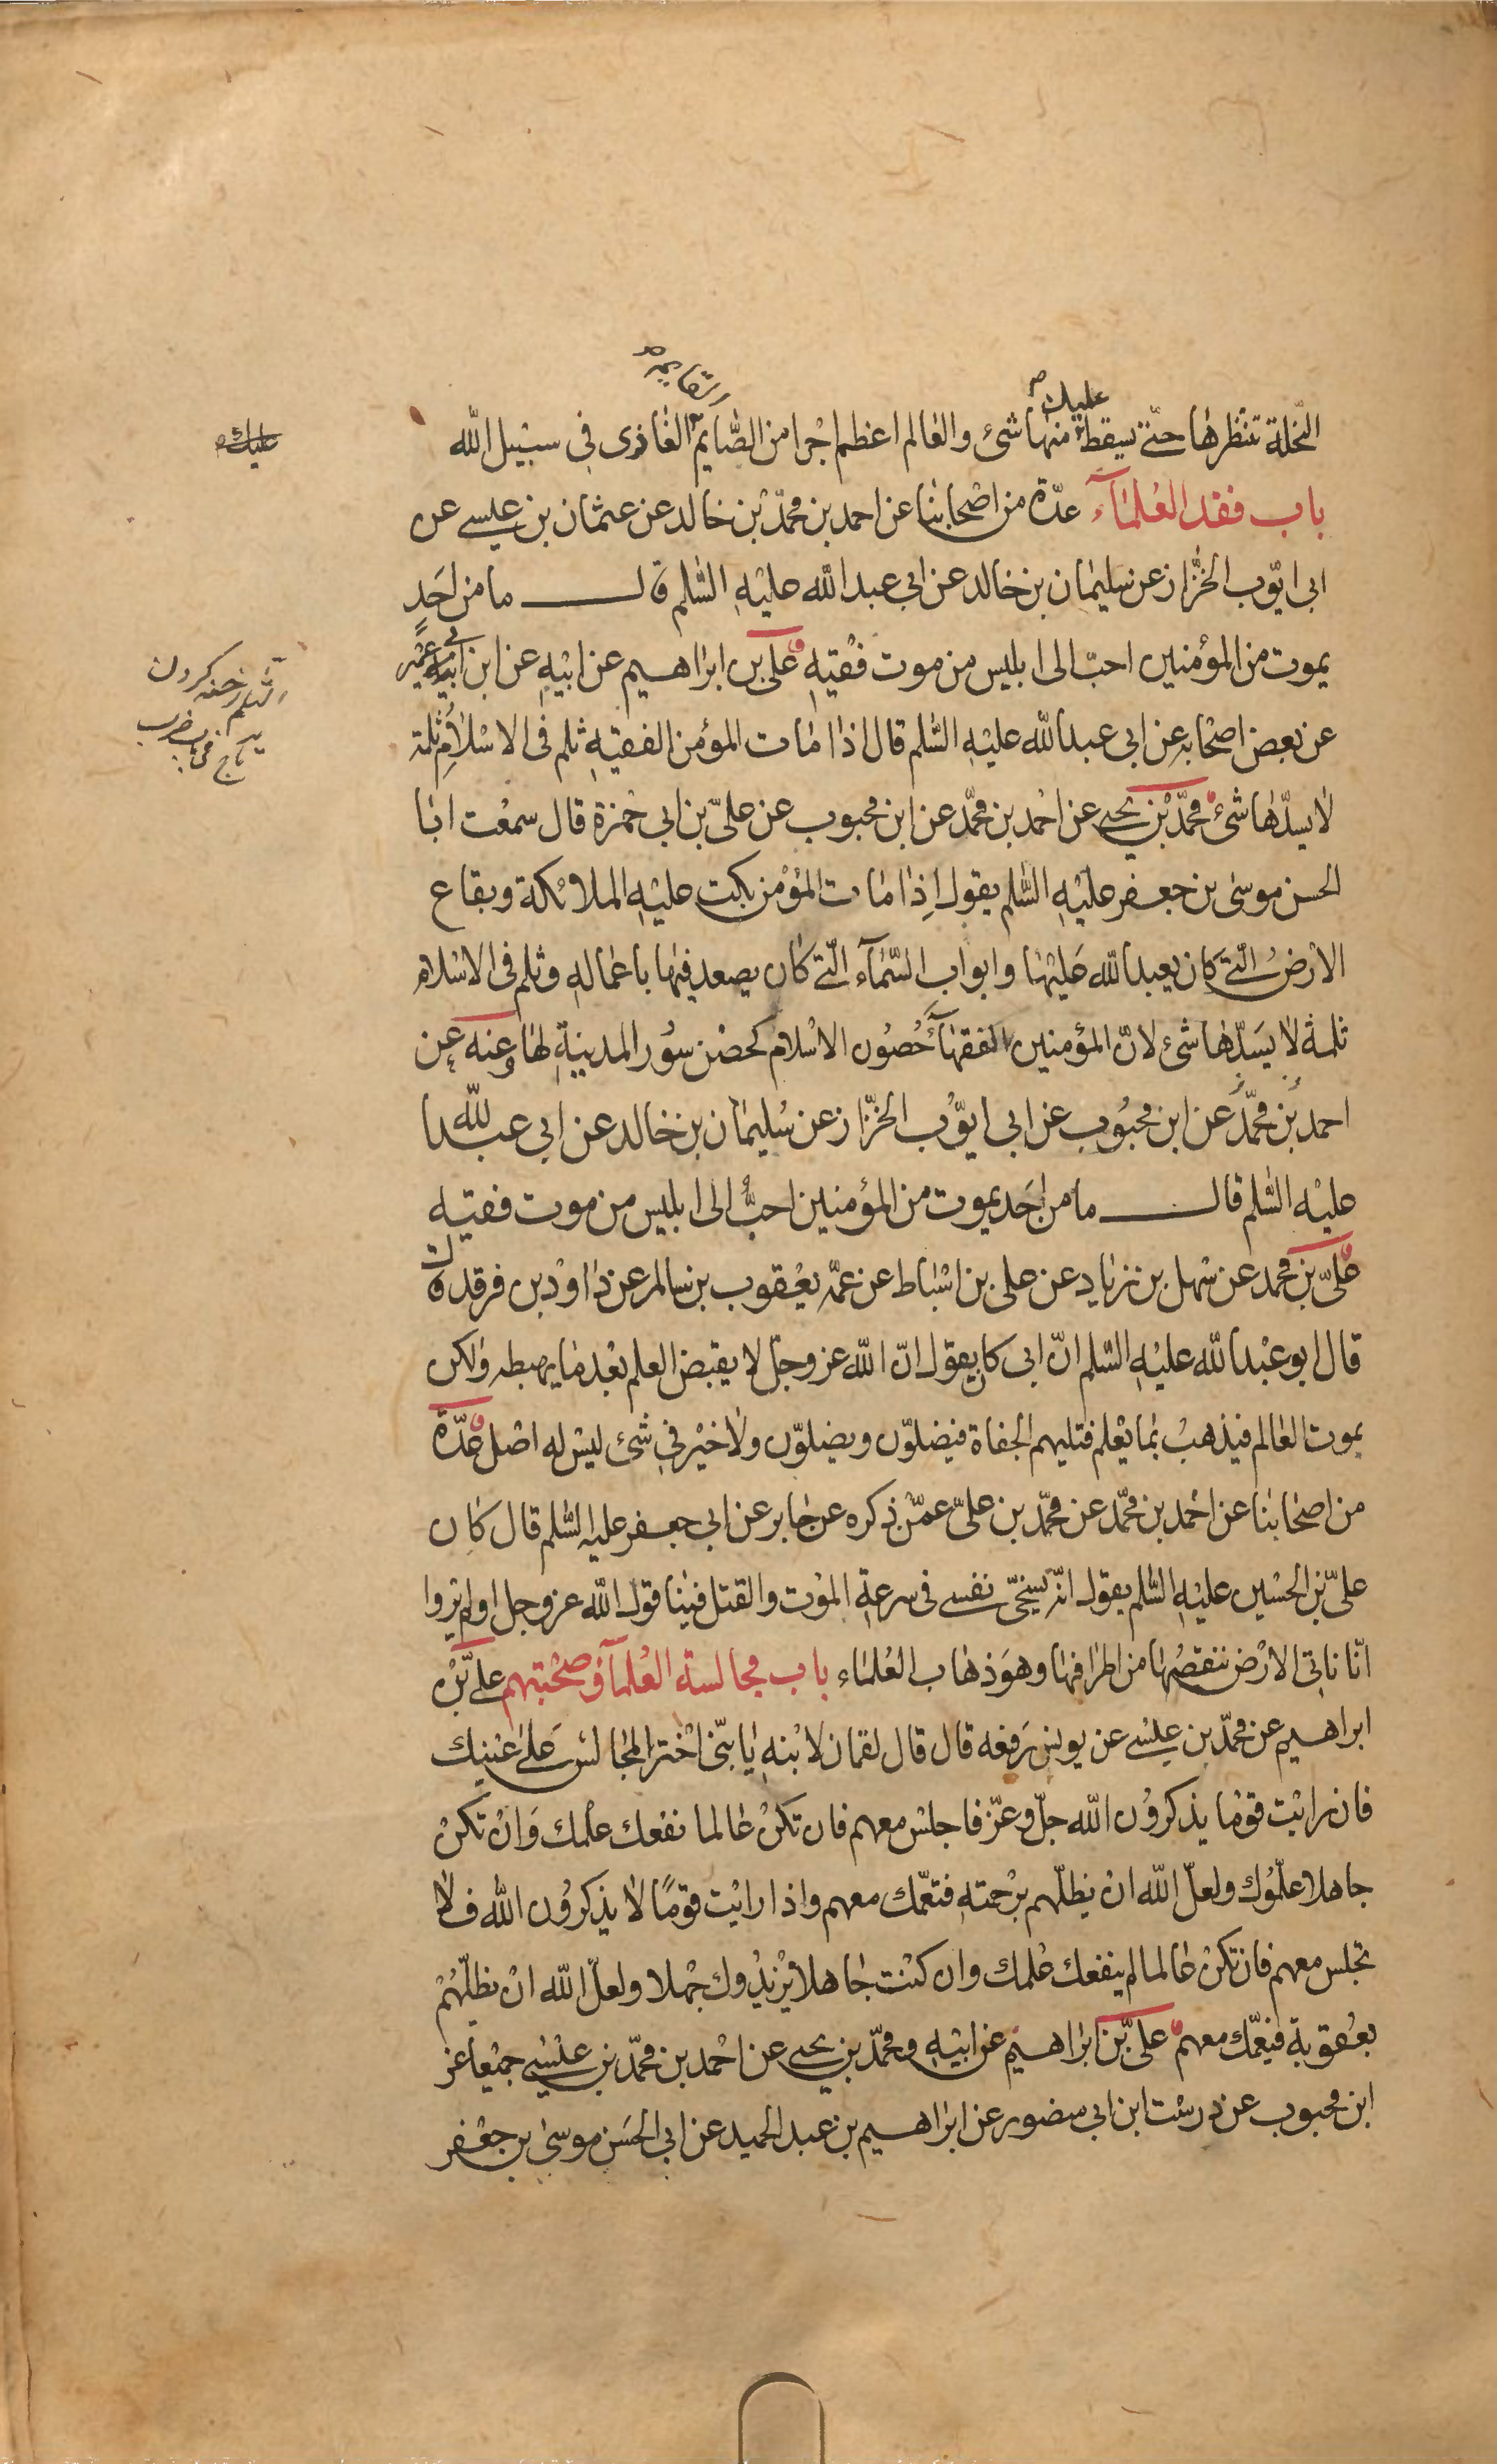 القايم ص
عليك ص
النّخلة تنتظرها حتّى يسقط منها شئ والعالم اعظم اجرا من الصّايم الغازى فى سبيل الله
عليك ص
باب فقد العلمآء عدّة من اصحابنا عن احمد بن محمّد بن خالد عن عثمان بن عيسى عن
ابى ايّوب الخزّاز عن سليمان بن خالد عن ابى عبد الله عليه السّلم قال ما من احد
يموت من المؤمنين احبّ الى ابليس من موت فقيه على بن ابراهيم عن ابيه عن ابن ابى عمير
الثلم رخنه كردن
تاج فى باب ضرب
عن بعض اصحابه عن ابى عبد الله عليه السّلم قال اذا مات المؤمن الفقيه ثلم فى الاسلام ثلمة
لا يسدّها شئ محمّد بن يحيى عن احمد بن محمّد عن ابن محبوب عن علىّ بن ابى حمزة قال سمعت ابا
الحسن موسى بن جعفر عليه السّلم يقول اذا مات المؤمن بكت عليه الملائكة وبقاع
الارض الّتى كان يعبد الله عليها وابواب السّمآء الّتى كان يصعد فيها باعماله وثلم فى الاسلام
ثلمة لا يسدّها شئ لانّ المؤمنين الفقهآء حصون الاسلام كحصن سور المدينة لها وعنه عن
احمد بن محمّد عن ابن محبوب عن ابى ايّوب الخزّاز عن سليمان بن خالد عن ابى عبد الله
عليه السّلم قال ما من احد يموت من المؤمنين احبّ الى ابليس من موت فقيه
علىّ بن محمد عن سهل بن زياد عن على بن اسباط عن عمّه يعقوب بن سالم عن داود بن فرقد قال
قال ابو عبد الله عليه السّلم انّ ابى كان يقول انّ الله عز وجلّ لا يقبض العلم بعد ما يهبطه ولكن
يموت العالم فيذهب بما يعلم فتليهم الجفاة فيضلّون ويضلّون ولا خير فى شئ ليس له اصل عدّة
من اصحابنا عن احمد بن محمّد عن محمّد بن علىّ عمّن ذكره عن جابر عن ابى جعفر عليه السّلم قال كان
علىّ بن الحسين عليه السّلم يقول انّه يسخّى نفسى فى سرعة الموت والقتل فينا قول الله عز وجل اولم يروا
انّا ناتى الارض ننقصها من اطرافها وهو ذهاب العلماء باب مجالسة العلمآء وصحبتهم علىّ بن
ابراهيم عن محمّد بن عيسى عن يونس رفعه قال قال لقمان لابنه يا بنىّ اختر المجالس على عينك
فان رايت قوما يذكرون الله جلّ وعزّ فاجلس معهم فان تكن عالما نفعك علمك وان تكن
جاهلا علّموك ولعلّ الله ان يظلّهم برحمته فتعمّك معهم واذا رايت قومًا لا يذكرون الله فلا
تجلس معهم فان تكن عالما لم ينفعك علمك وان كنت جاهلا يزيدوك جهلا ولعلّ الله ان يظلّهم
بعقوبة فيعمّك معهم علىّ بن ابراهيم عن ابيه ومحمّد بن يحيى عن احمد بن محمّد بن عيسى جميعا عن
ابن محبوب عن درست ابن ابى منصور عن ابراهيم بن عبد الحميد عن ابى الحسن موسى بن جعفر